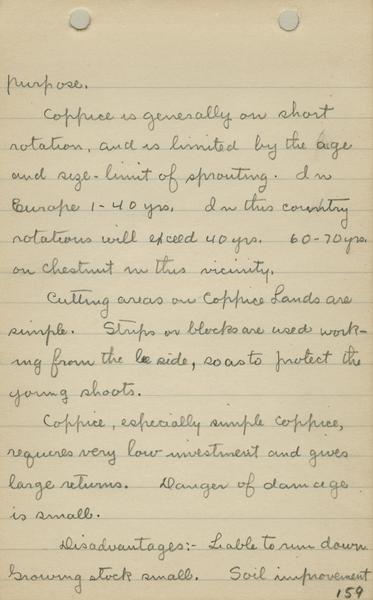 purpose.
Coppice is generally on short
rotation, and is limited by the age
and size-limit of sprouting. In
Europe 1-40 yrs. In this country
rotations will exceed 40 yrs. 60-70 yrs.
on chestnut in this vicinity.
Cutting areas on Coppice Lands are
simple. Strips or blocks are used work-
ing from the lee side, so as to protect the
young shoots.
Coppice, especially simple coppice,
requires very low investment and gives
large returns. Danger of damage
is small.
Disadvantages:- Liable to run down
Growing stock small. Soil improvement
159